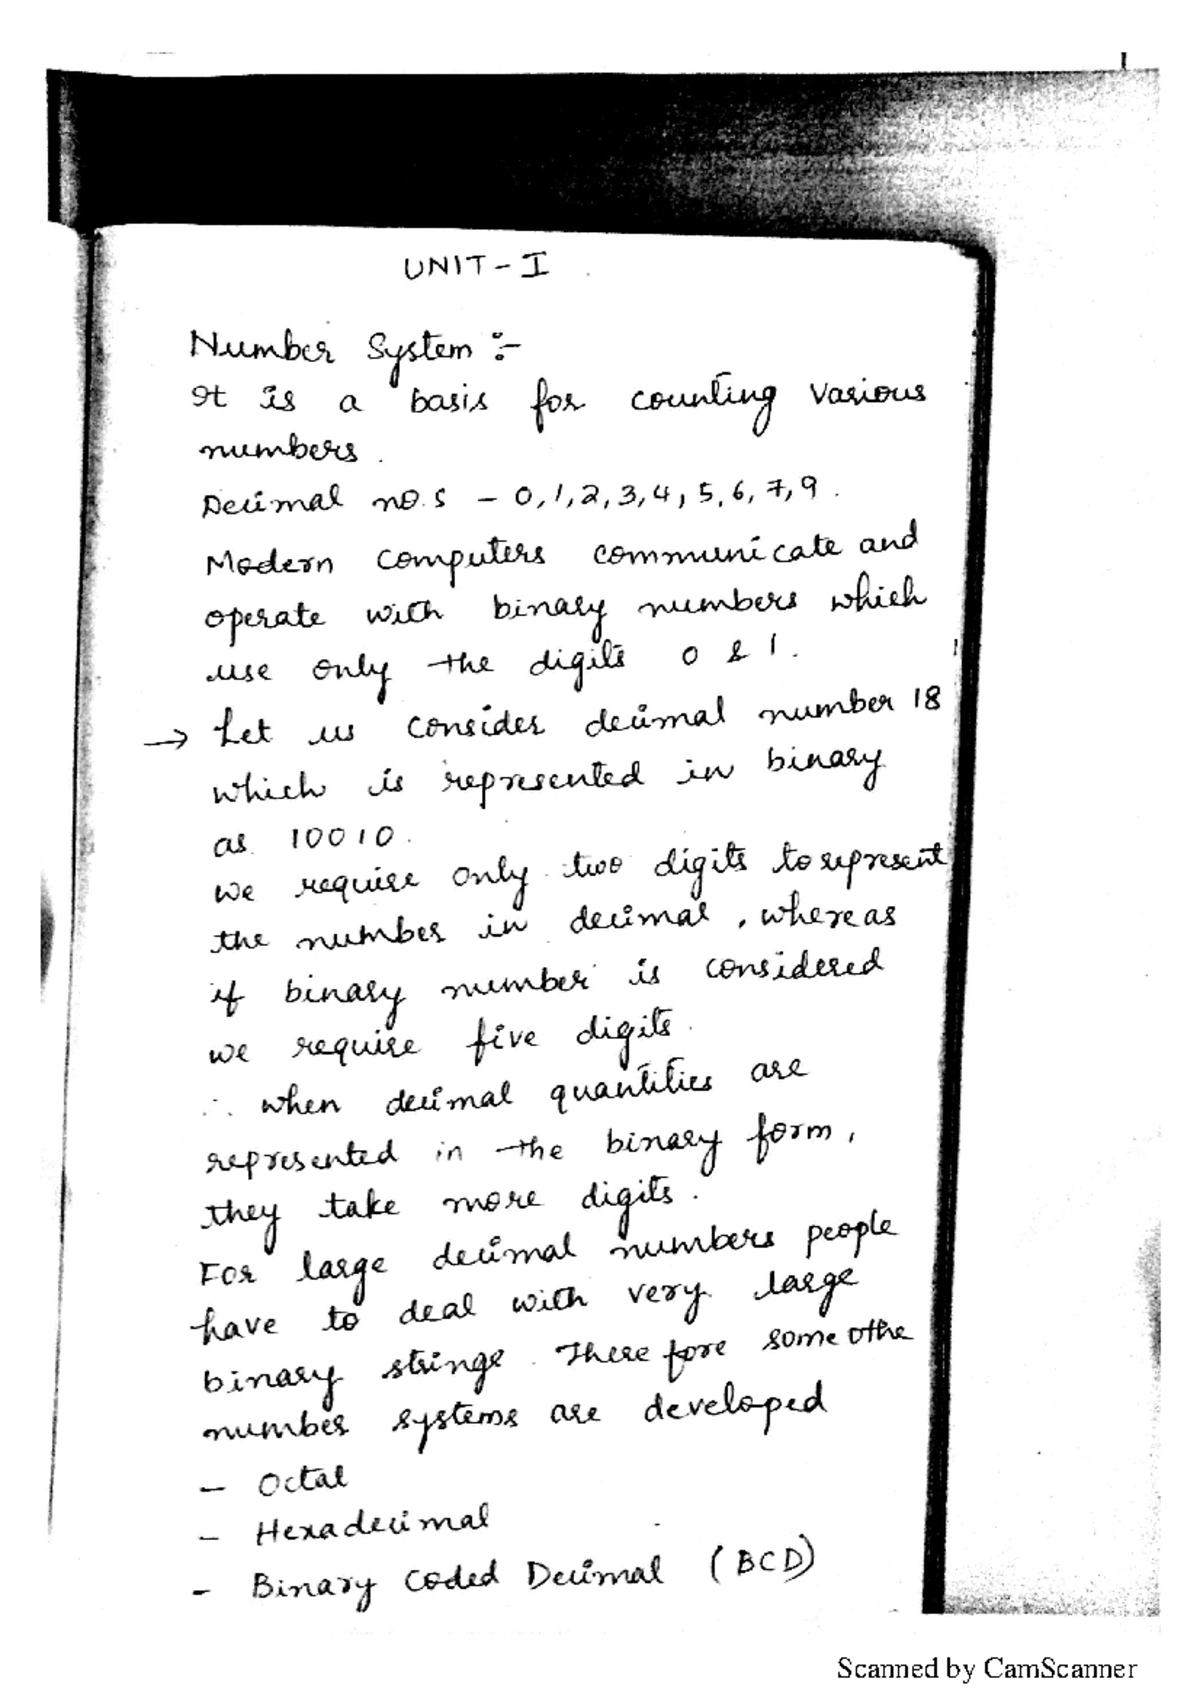 1
UNIT-I
Number System :-
It is a basis for counting various
numbers.
Decimal no.s - 0,1,2,3,4,5,6,7,9.
Modern computers communicate and
operate with binary numbers which
use only the digits 0 & 1.
→ Let us consider decimal number 18
which is represented in binary
as 10010.
we require only two digits to represent
the number in decimal, whereas
if binary number is considered
we require five digits.
∴ when decimal quantities are
represented in the binary form,
they take more digits.
For large decimal numbers people
have to deal with very large
binary strings. Therefore some othe
number systems are developed
- Octal
- Hexadecimal
- Binary Coded Decimal (BCD)
Scanned by CamScanner